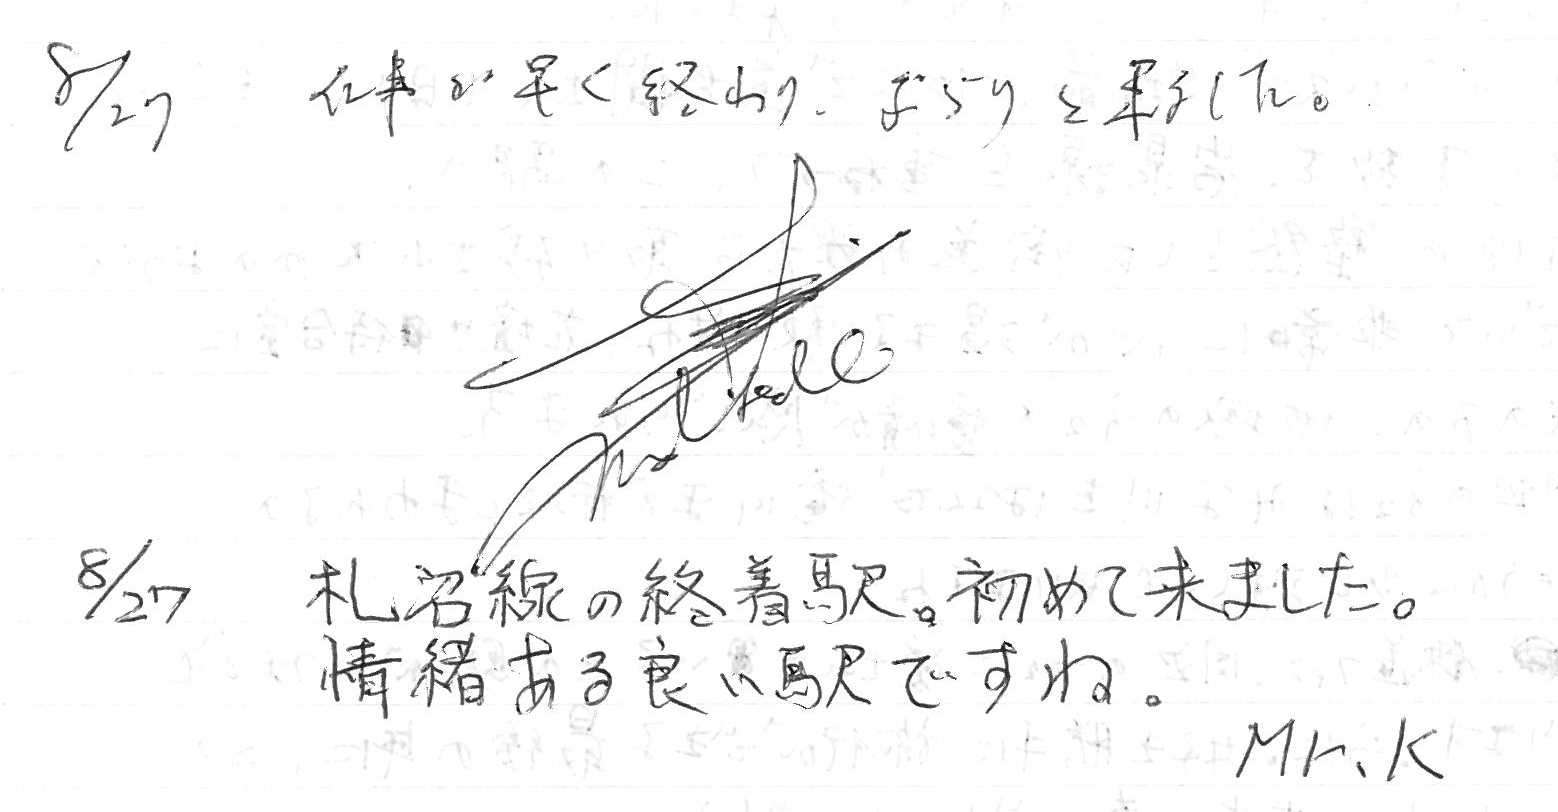 8/27 仕事が早く終わり、ぶらりと来ました。
8/27 札沼線の終着駅。初めて来ました。
情緒ある良い駅ですね。
Mr.K